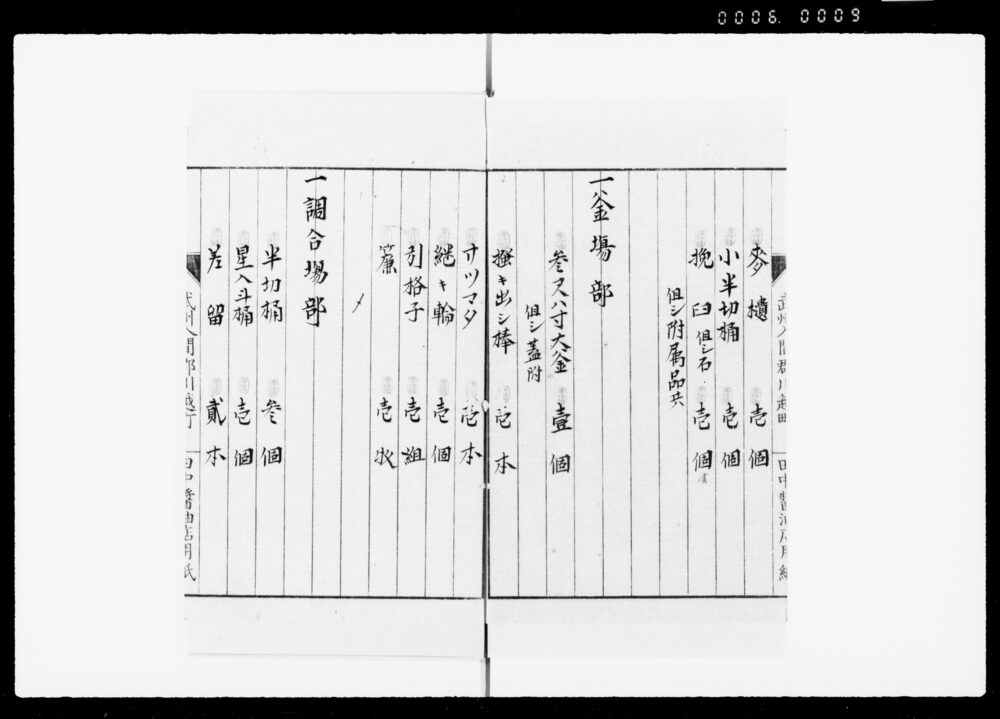 0006. 0009
麥櫃 壱個
小半切桶 壱個
挽臼 但シ石 壱個
但シ附属品共
一釜場部
参尺八寸大釜 壹個
但シ蓋附
掻キ出シ棒 壱本
サツマタ 壱本
継キ輪 壱個
引格子 壱組
簾 壱枚
〆
一調合場部
半切桶 参個
星入斗桶 壱個
差留 貳本
武州入間郡川越町 田中醤油店用紙